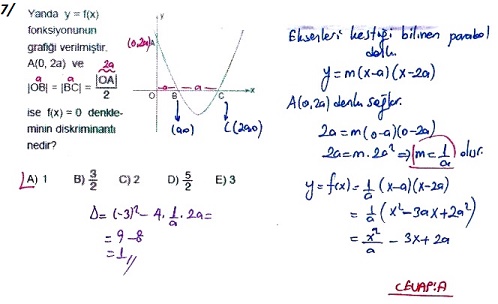 7/
Yanda y = f(x)
fonksiyonunun
grafiği verilmiştir.
A(0, 2a) ve
a a 2a
|OB| = |BC| = |OA|/2
ise f(x) = 0 denkle-
minin diskriminantı
nedir?
y
(0,2a) A
a a
O B C x
(a,0) C(2a,0)
A) 1 B) 3/2 C) 2 D) 5/2 E) 3
Δ = (-3)² - 4 . 1/a . 2a =
= 9 - 8
= 1 //
Eksenleri kestiği bilinen parabol
denk.
y = m(x-a)(x-2a)
A(0,2a) denk. sağlar.
2a = m(0-a)(0-2a)
2a = m. 2a² ⇒ m = 1/a olur.
y = f(x) = 1/a (x-a)(x-2a)
= 1/a (x² - 3ax + 2a²)
= x²/a - 3x + 2a
CEVAP: A